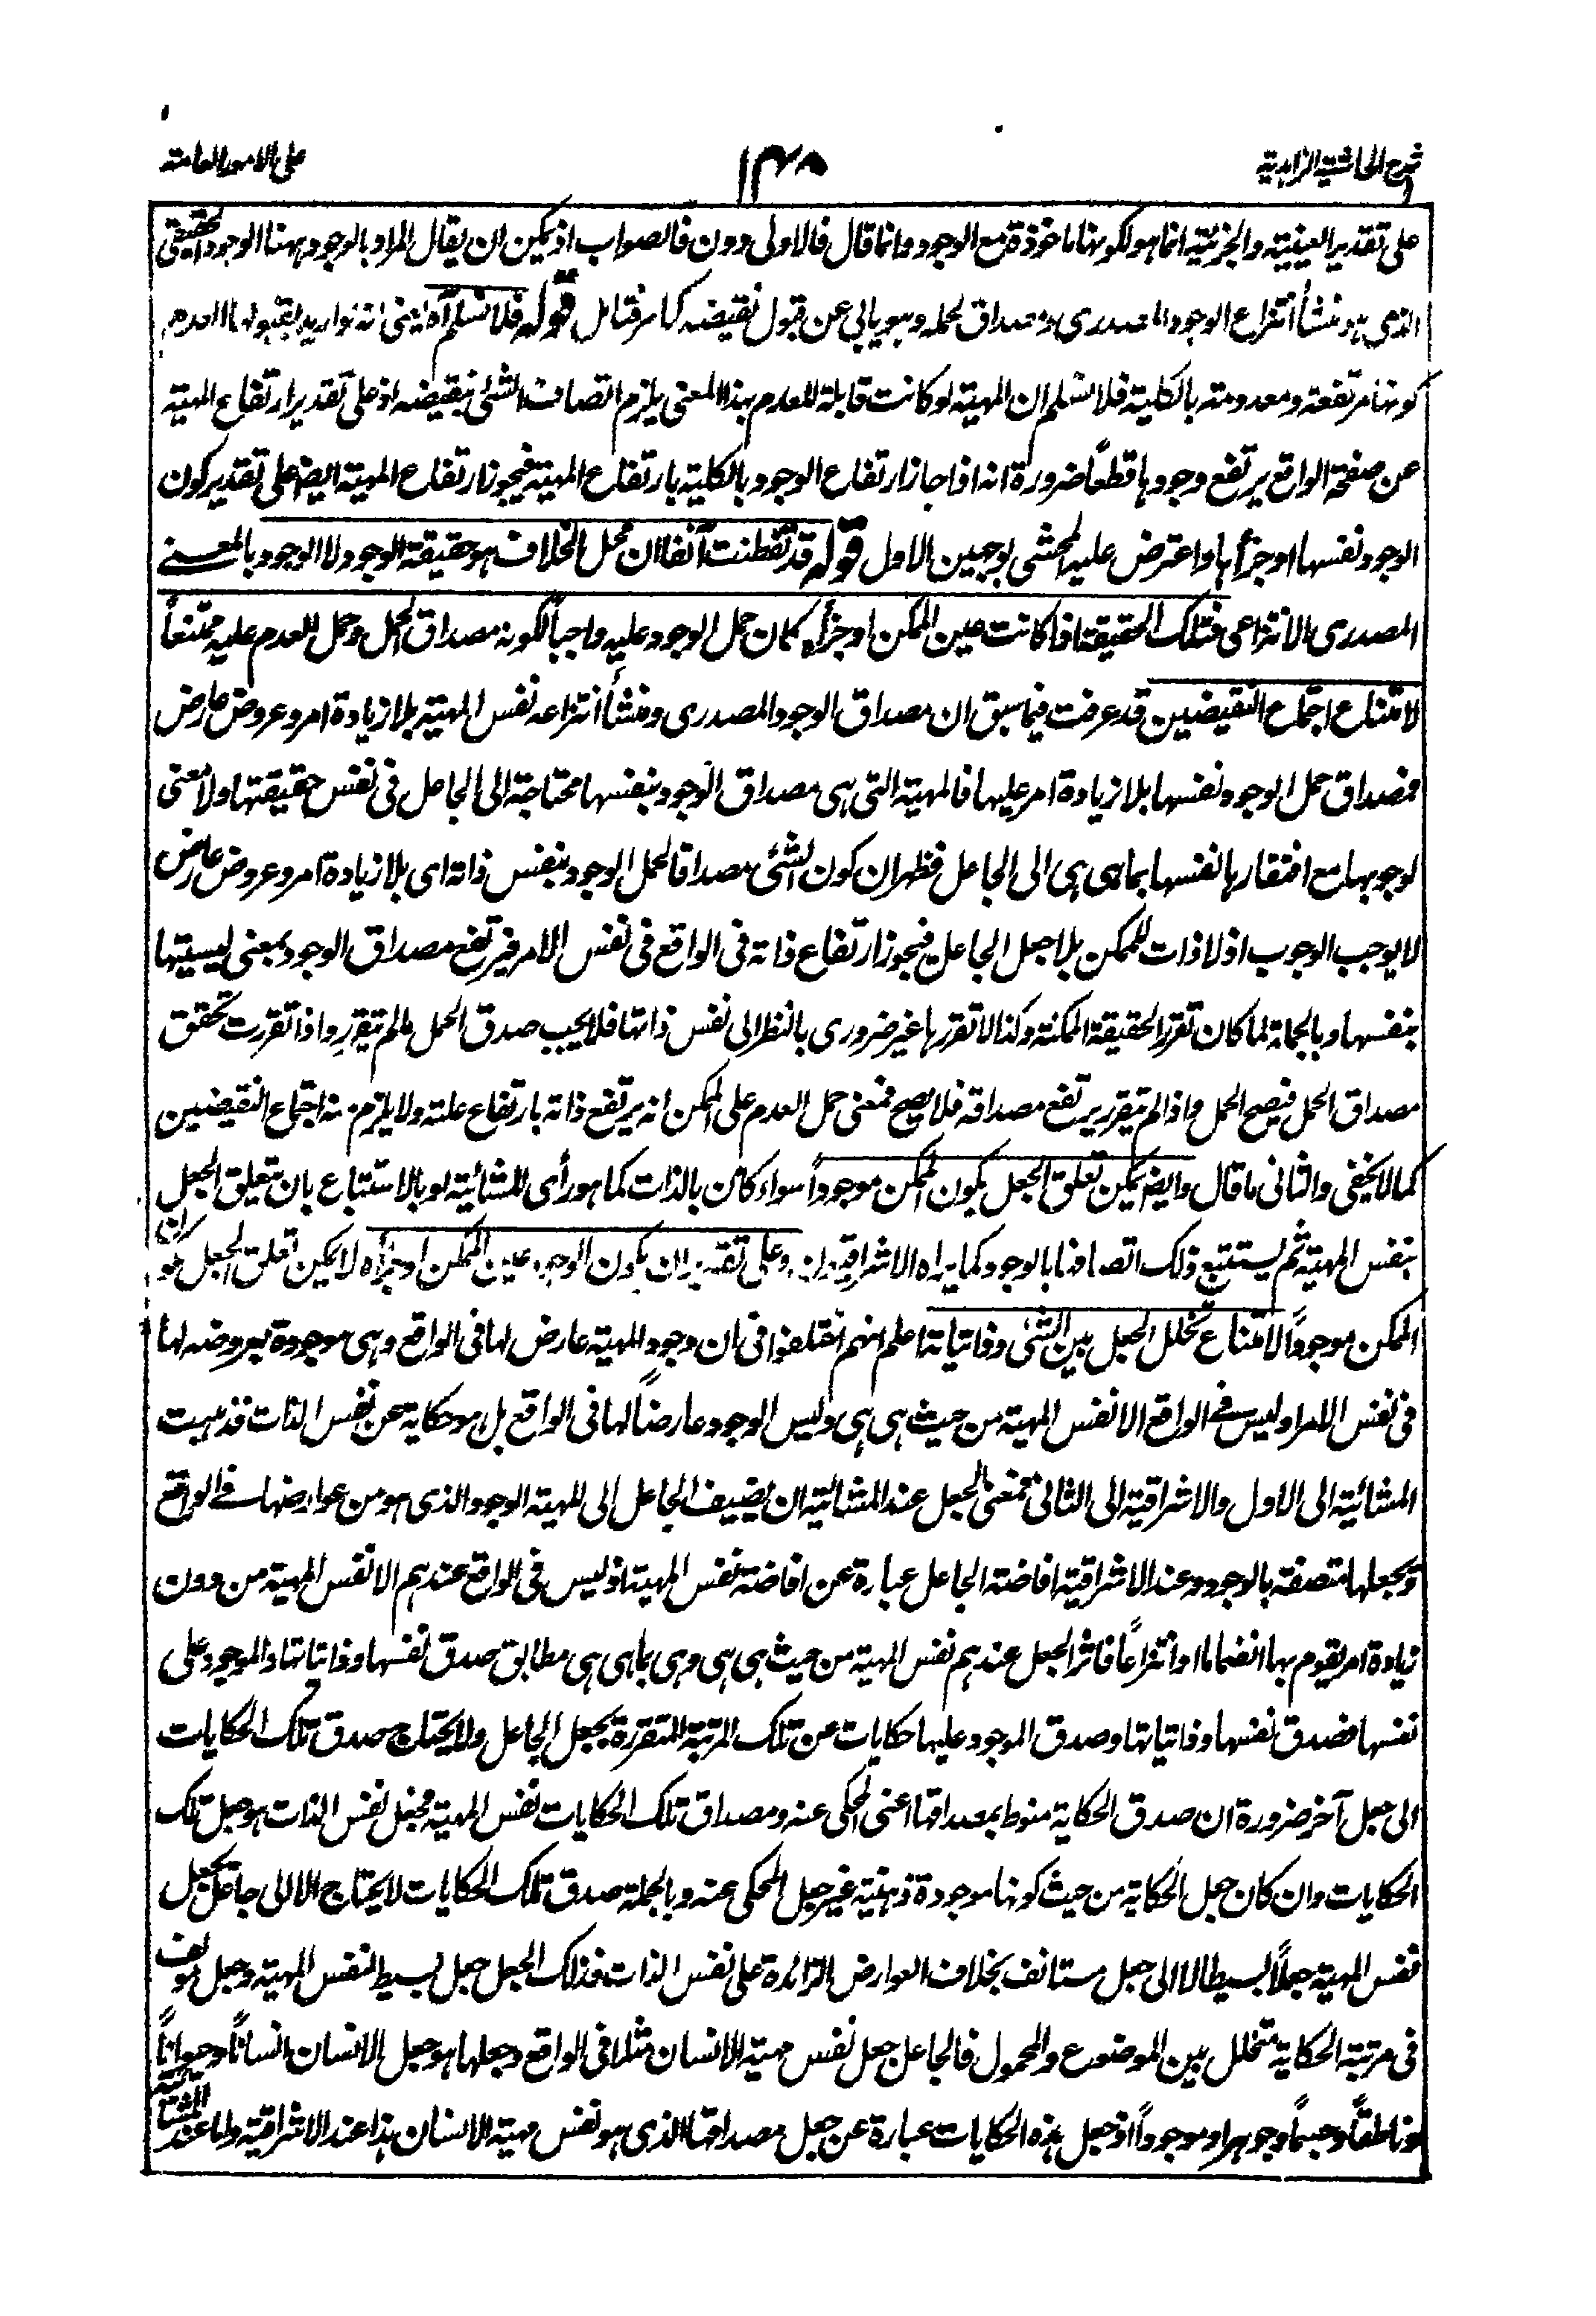 شرح الحاشية الزاهدية
١٣٨
على الامور العامة
على تقدير العينية والجزئية انما هو لكونها ماخوذة مع الوجود وانما قال فالاولى دون فالصواب اذ يمكن ان يقال المراد بالوجود ههنا الوجود الحقيقي
الذي هو منشأ انتزاع الوجود المصدري ومصداق لحمله وهو يابى عن قبول نقيضه كما مر فتامل قوله فلا نسلم آه يعني انه لو اريد بقبولها العدم
كونها مرتفعة ومعدومة بالكلية فلا نسلم ان المهية لو كانت قابلة للعدم بهذا المعنى يلزم اتصاف الشئ بنقيضه اذ على تقدير ارتفاع المهية
عن صفحة الواقع يرتفع وجودها قطعًا ضرورة انه اذا جاز ارتفاع الوجود بالكلية بارتفاع المهية فيجوز ارتفاع المهية ايضا على تقدير كون
الوجود نفسها او جزأها واعترض عليه المحشي بوجهين الاول قوله قد تفطنت آنفا ان محل الخلاف هو حقيقة الوجود لا الوجود بالمعنى
المصدري الانتزاعي فتلك الحقيقة اذا كانت عين الممكن او جزأه كان حمل الوجود عليه واجباً لكونه مصداق الحمل وحمل العدم عليه ممتنعاً
لامتناع اجتماع النقيضين قد عرفت فيما سبق ان مصداق الوجود المصدري ومنشأ انتزاعه نفس المهية بلا زيادة امر وعروض عارض
فمصداق حمل الوجود نفسها بلا زيادة امر عليها فالمهية التي هي مصداق الوجود بنفسها محتاجة الى الجاعل في نفس حقيقتها ولا معنى
لوجوبها مع افتقارها لنفسها بما هي هي الى الجاعل فظهر ان كون الشئ مصداقا لحمل الوجود بنفس ذاته اي بلا زيادة امر وعروض عارض
لا يوجب الوجوب اذ لا ذات للممكن بلا جعل الجاعل فيجوز ارتفاع ذاته في الواقع في نفس الامر فيرتفع مصداق الوجود بمعنى ليسيتها
بنفسها وبالجملة لما كان تقرر الحقيقة الممكنة وكذا لا تقررها غير ضروري بالنظر الى نفس ذاتها فلا يجب صدق الحمل مالم يتقرر واذا تقررت تحقق
مصداق الحمل فيصح الحمل واذا لم يتقرر يرتفع مصداقه فلا يصح فمعنى حمل العدم على الممكن انه يرتفع ذاته بارتفاع علته ولا يلزم منه اجتماع النقيضين
كما لا يخفى والثاني ما قال وايضا يمكن تعلق الجعل بكون الممكن موجوداً سواء كان بالذات كما هو رأى المشائية او بالاستتباع بان يتعلق الجعل
بنفس المهية ثم يستتبع ذلك اتصافها بالوجود كما يراه الاشراقية وعلى تقدير ان يكون الوجود عين الممكن او جزأه لا يمكن تعلق الجعل بكون
الممكن موجوداً لامتناع تخلل الجعل بين الشئ وذاتياته اعلم انهم اختلفوا في ان وجود المهية عارض لها في الواقع وهي موجودة بعروضه لها
في نفس الامر او ليس في الواقع الا نفس المهية من حيث هي هي وليس الوجود عارضاً لها في الواقع بل هو حكاية عن نفس الذات فذهبت
المشائية الى الاول والاشراقية الى الثاني فمعنى الجعل عند المشائية ان يضيف الجاعل الى المهية الوجود الذي هو من عوارضها في الواقع
ويجعلها متصفة بالوجود وعند الاشراقية افاضة الجاعل عبارة عن افاضة نفس المهية اذ ليس في الواقع عندهم الا نفس المهية من دون
زيادة امر يقوم بها انضماما او انتزاعاً فاثر الجعل عندهم نفس المهية من حيث هي هي وهي بما هي هي مطابق صدق نفسها وذاتياتها والموجود على
نفسها فصدق نفسها وذاتياتها وصدق الموجود عليها حكايات عن تلك المرتبة المتقررة بجعل الجاعل ولا يحتاج صدق تلك الحكايات
الى جعل آخر ضرورة ان صدق الحكاية منوط بمصداقها اعني المحكى عنه ومصداق تلك الحكايات نفس المهية فجعل نفس الذات هو جعل تلك
الحكايات وان كان جعل الحكاية من حيث كونها موجودة ذهنية غير جعل المحكى عنه وبالجملة صدق تلك الحكايات لا يحتاج الا الى جاعل يجعل
نفس المهية جعلاً بسيطا لا الى جعل مستانف بخلاف العوارض الزائدة على نفس الذات فذلك الجعل جعل بسيط لنفس المهية وجعل مؤلف
في مرتبة الحكاية متخلل بين الموضوع والمحمول فالجاعل جعل نفس مهية الانسان مثلا في الواقع وجعلها هو جعل الانسان انساناً وحيواناً
وناطقاً وجسماً وجوهرا وموجوداً اذ جعل هذه الحكايات عبارة عن جعل مصداقها الذي هو نفس مهية الانسان هذا عند الاشراقية واما عند المشائية